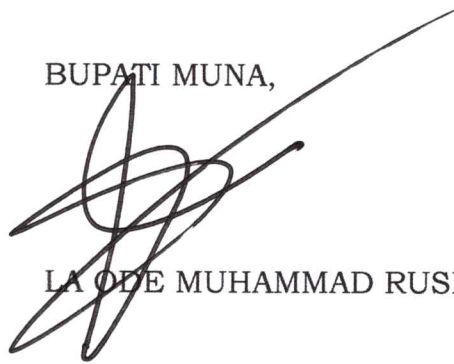 BUPATI MUNA,
LA ODE MUHAMMAD RUS